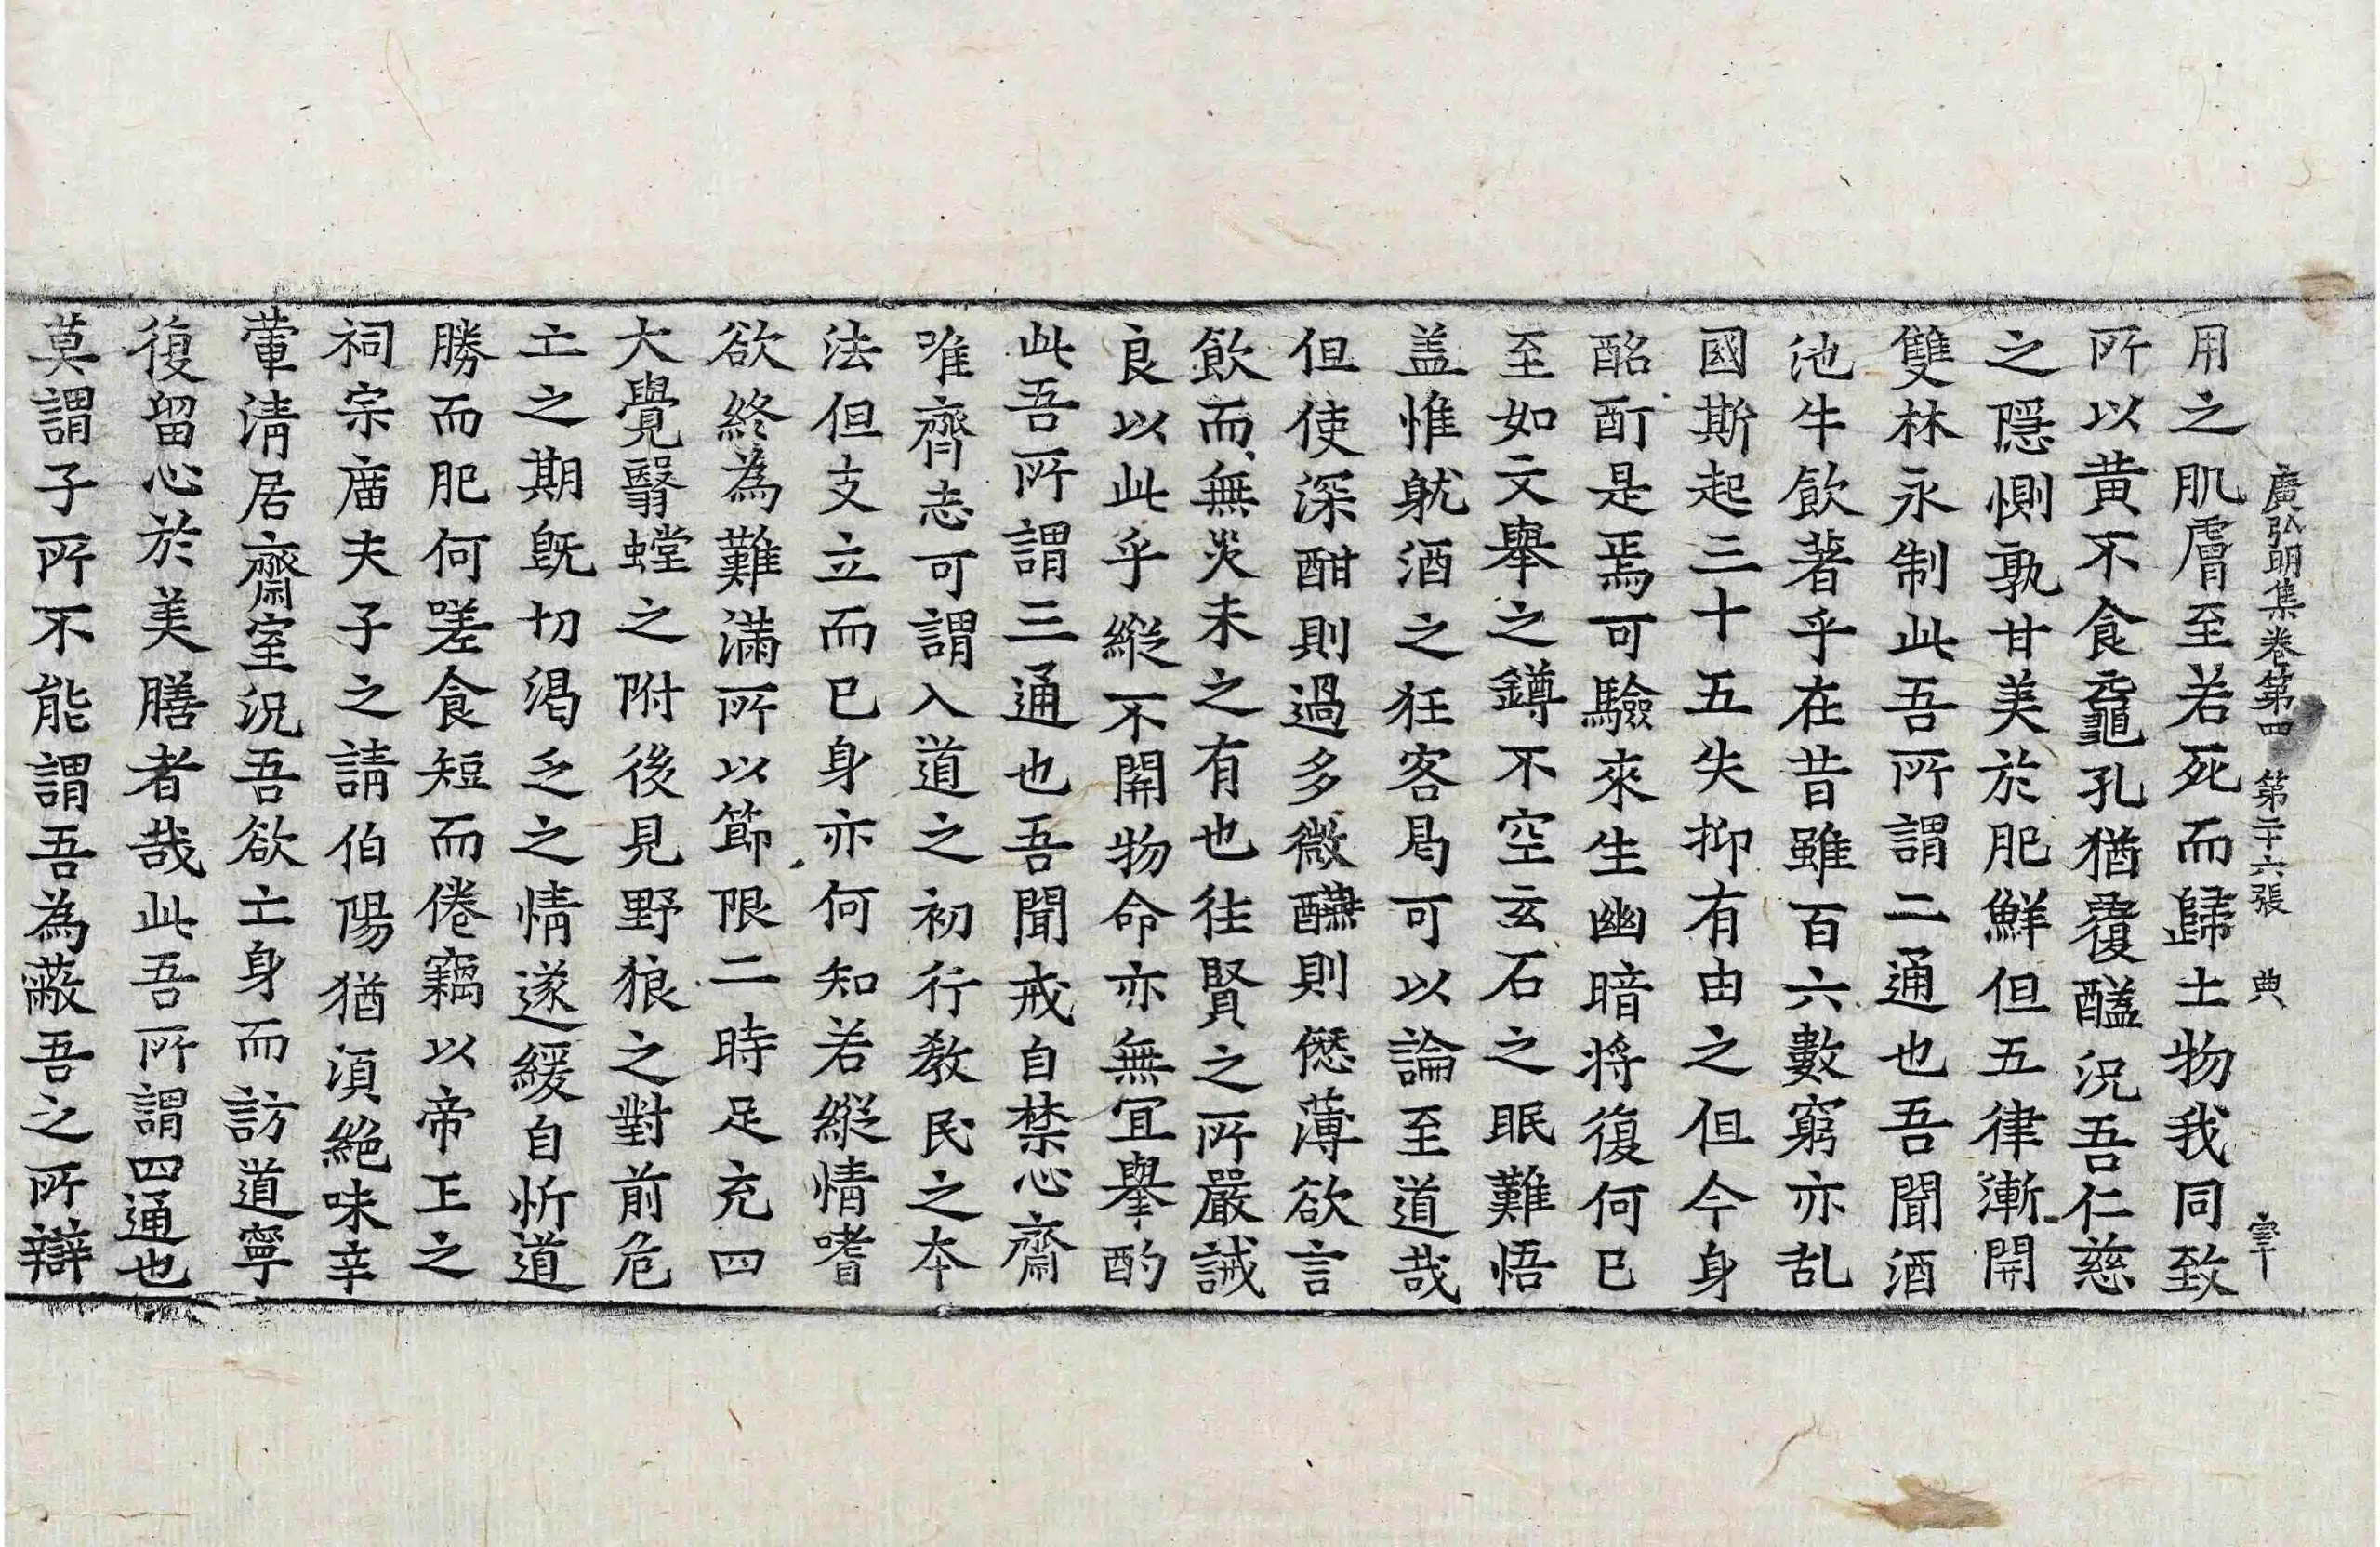 廣弘明集卷第四 第二十六張 典
用之肌膚至若死而歸土物我同致
所以黃不食龜孔猶覆醢況吾仁慈
之隱惻孰甘美於肥鮮但五律漸開
雙林永制此吾所謂二通也吾聞酒
池牛飲著乎在昔雖百六數窮亦乱
國斯起三十五失抑有由之但今身
酩酊是焉可驗來生幽暗將復何已
至如文舉之鐏不空玄石之眠難悟
盖惟躭酒之狂客曷可以論至道哉
但使深酣則過多微醼則僽薄欲言
飲而無災未之有也往賢之所嚴誡
良以此乎縱不關物命亦無宜舉酌
此吾所謂三通也吾聞戒自禁心齋
唯齊志可謂入道之初行教民之本
法但支立而已身亦何知若縱情嗜
欲終為難滿所以節限二時足充四
大覺翳螳之附後見野狼之對前危
亡之期旣切渴乏之情遂緩自忻道
勝而肥何嗟食短而倦竊以帝王之
祠宗庙夫子之請伯陽猶湏絕味辛
葷清居齋室況吾欲亡身而訪道寧
復留心於美膳者哉此吾所謂四通也
莫謂子所不能謂吾為蔽吾之所辯